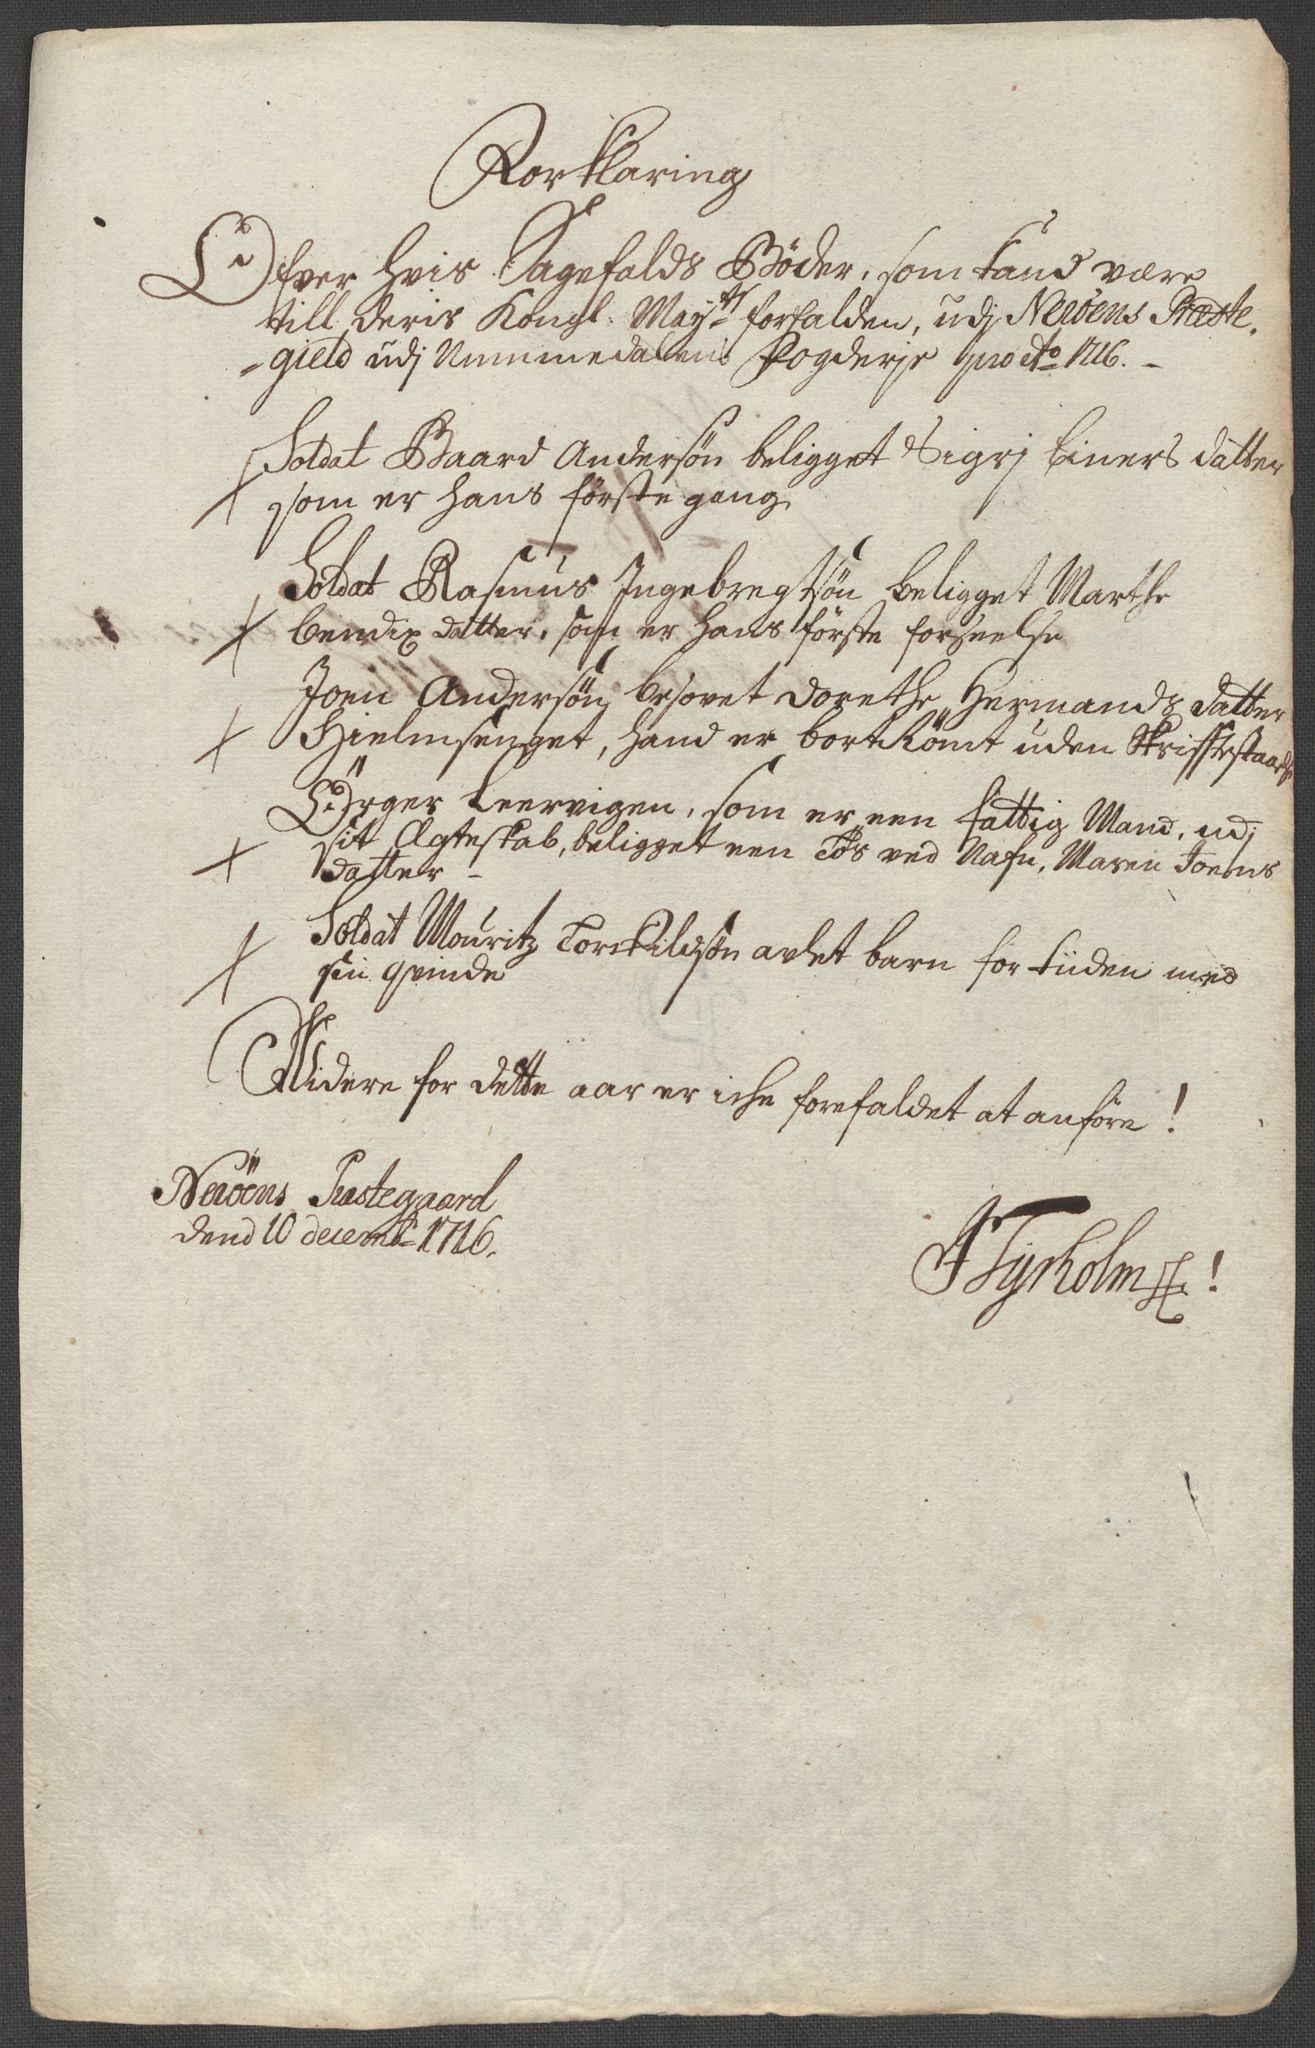 Forklaring
Ofver hvis Sagefalds Bøder, som kand være
till deris Kongl. Mayts forfalden, udj Nerøens Præste-
-gield udj Nummedalens Fogderje pro Ao 1716. -
Soldat Baard Andersøn beligget Sigrj Einers datter
som er hans første gang
Soldat Rasmus Ingebregtsøn beligget Marthe
bendix datter, som er hans første forseelse
Joen Andersøn besovet Dorethe Hermands datter
Hielmsenget, hand er bortkömt uden Skriffte
Ørger Leervigen, som er een fattig Mand, udj
sit Ægteskab, beligget een Tøs ved Nafn, Maren Joens
datter -
Soldat Mouritz Torckildsøn avlet barn for tiiden med
sin qvinde
Widere for dette aar er iche forefaldet at anføre!
Nerøens Præstegaard
dend 10 decembr 1716.
Tyrholm !